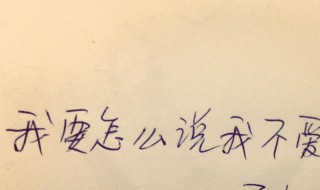 我要怎么说我不爱